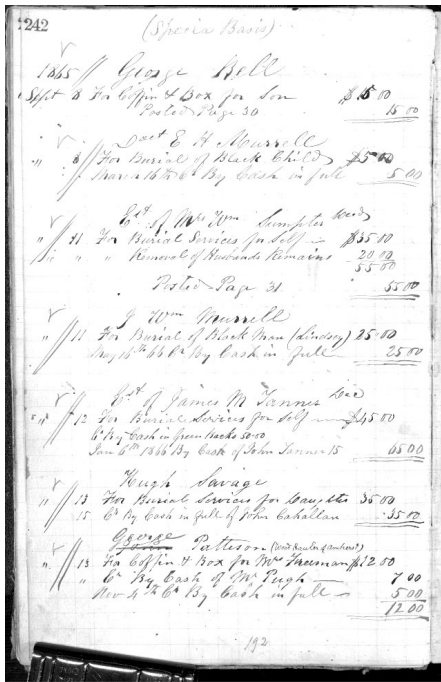 242
(Specia Basis)
1865 // George Bell
Sept 8 For Coffin & Box for Son $15 00
Posted Page 30 15 00
Doct E H Murrell
" 8 For Burial of Black Child $5 00
March 16th By Cash in full 5 00
Est of Mrs Wm Sumpter
" // 11 For Burial Services for Self $35 00
" // " " Removal of Husbands Remains 20 00
55 00
Posted Page 31 55 00
J Wm Murrell
" // 11 For Burial of Black Man (Lindsey) 25 00
May 16th 66 Cr By Cash in full 25 00
Est of James M Tanner Dec
" // 12 For Burial Services for Self $45 00
Cr By Cash in Green backs 50 00
Jan 6th 1866 By Cash of John Tanner 15 65 00
Hugh Savage
" // 13 For Burial Services for Daughter 35 00
15 Cr By Cash in full of John Cahallan 35 00
George
Patteson (Wood Hauler of Amherst)
" // 13 For Coffin & Box for Mr Freeman $12 00
" Cr By Cash of Mr Pugh 7 00
Nov 4th Cr By Cash in full 5 00
12 00
192